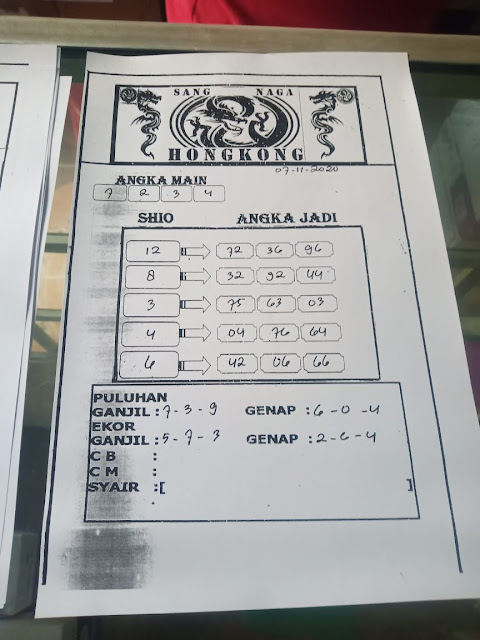 SANG NAGA
HONGKONG
07-11-2020
ANGKA MAIN
7 2 3 4
SHIO ANGKA JADI
12 72 36 96
8 32 92 44
3 75 63 03
4 04 76 64
6 42 06 66
PULUHAN
GANJIL : 7-3-9 GENAP : 6-0-4
EKOR
GANJIL : 5-7-3 GENAP : 2-6-4
C B :
C M :
SYAIR :[ ]